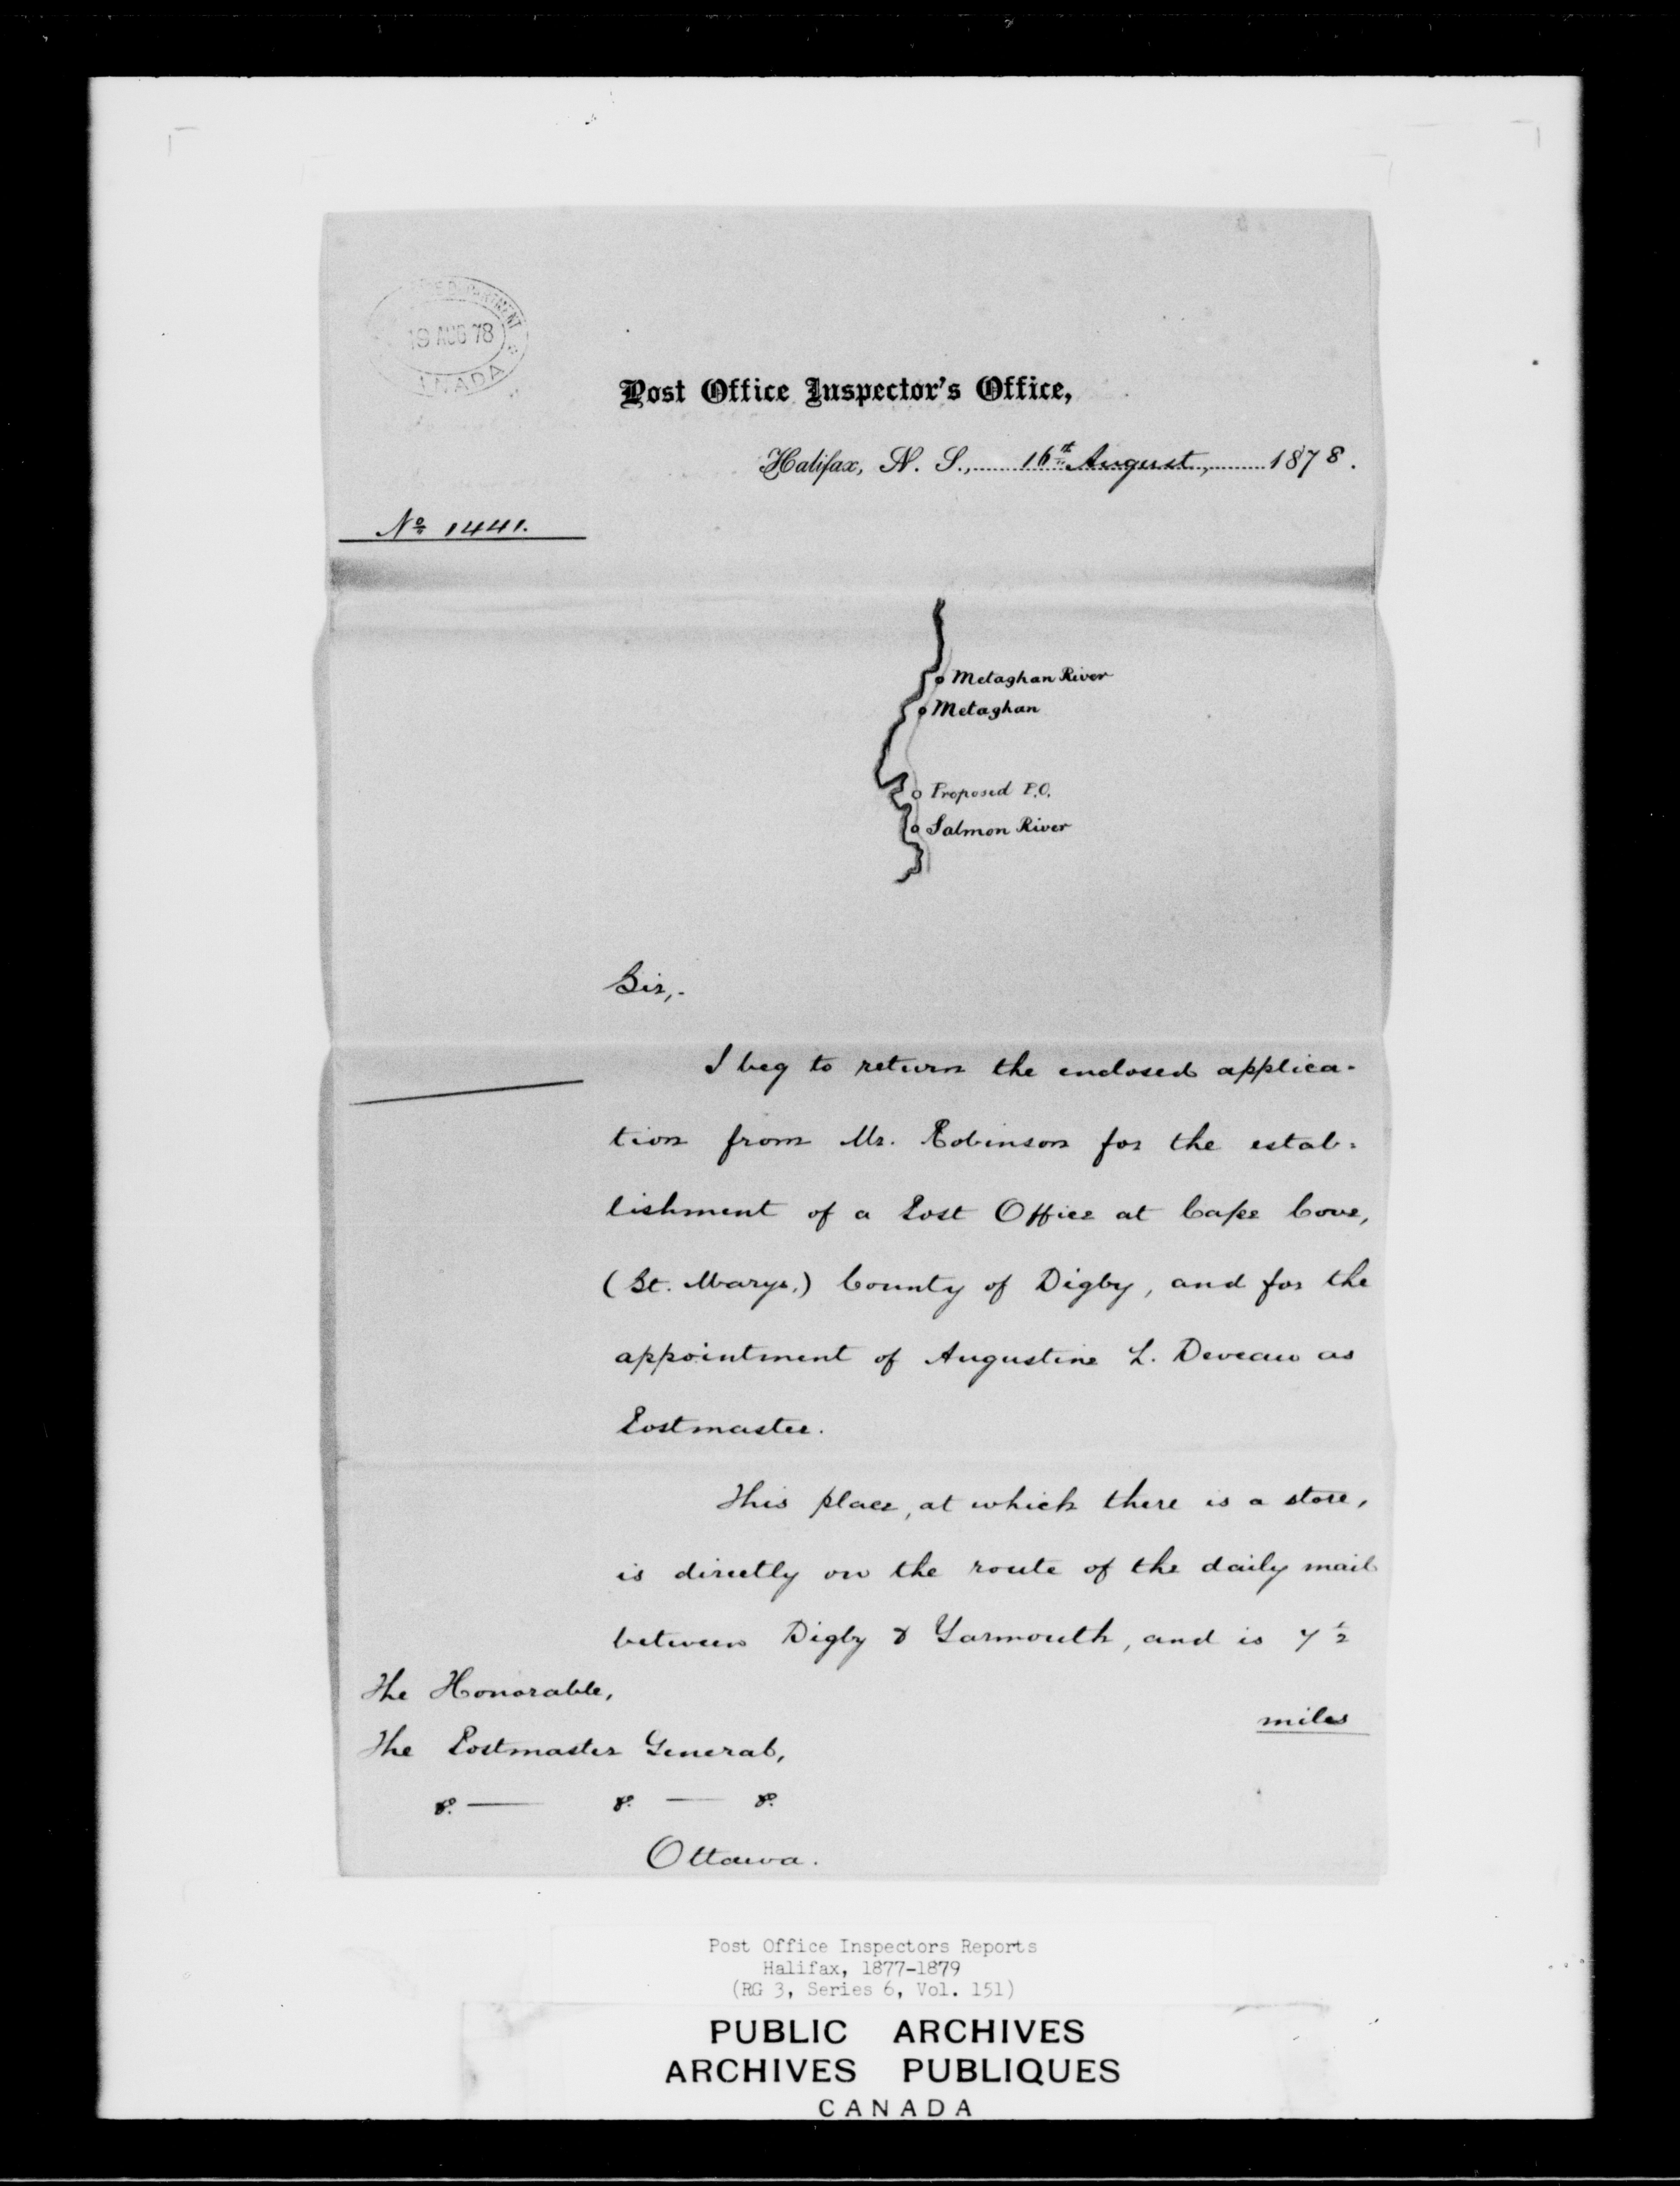 19 AUG 78
Post Office Inspector's Office,
Halifax, N. S., 16th August, 1878.
No 1441.
Metaghan River
Metaghan
Proposed P.O.
Salmon River
Sir,-
I beg to return the enclosed applica-
tion from Mr. Robinson for the estab-
lishment of a Post Office at Cape Cove,
(St. Marys,) County of Digby, and for the
appointment of Augustine L. Deveau as
Postmaster.
This place, at which there is a store,
is directly on the route of the daily mail
between Digby & Yarmouth, and is 7 1/2
miles
The Honorable,
The Postmaster General,
&. — &. — &.
Ottawa.
Post Office Inspectors Reports
Halifax, 1877-1879
(RG 3, Series 6, Vol. 151)
PUBLIC ARCHIVES
ARCHIVES PUBLIQUES
CANADA